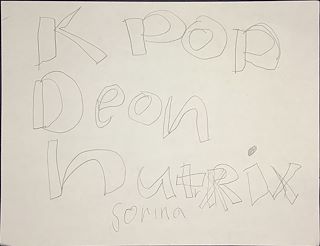 K POP
Deon
hutRix
Sorina